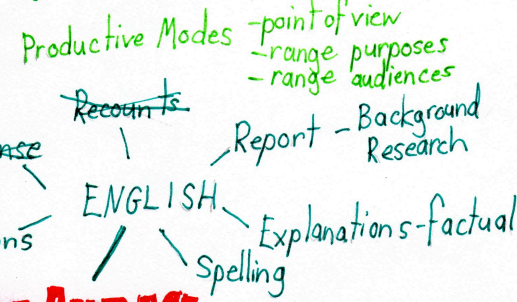 Productive Modes - point of view
- range purposes
- range audiences
Recounts
Report - Background
Research
nse
ENGLISH
ns
Explanations - factual
Spelling